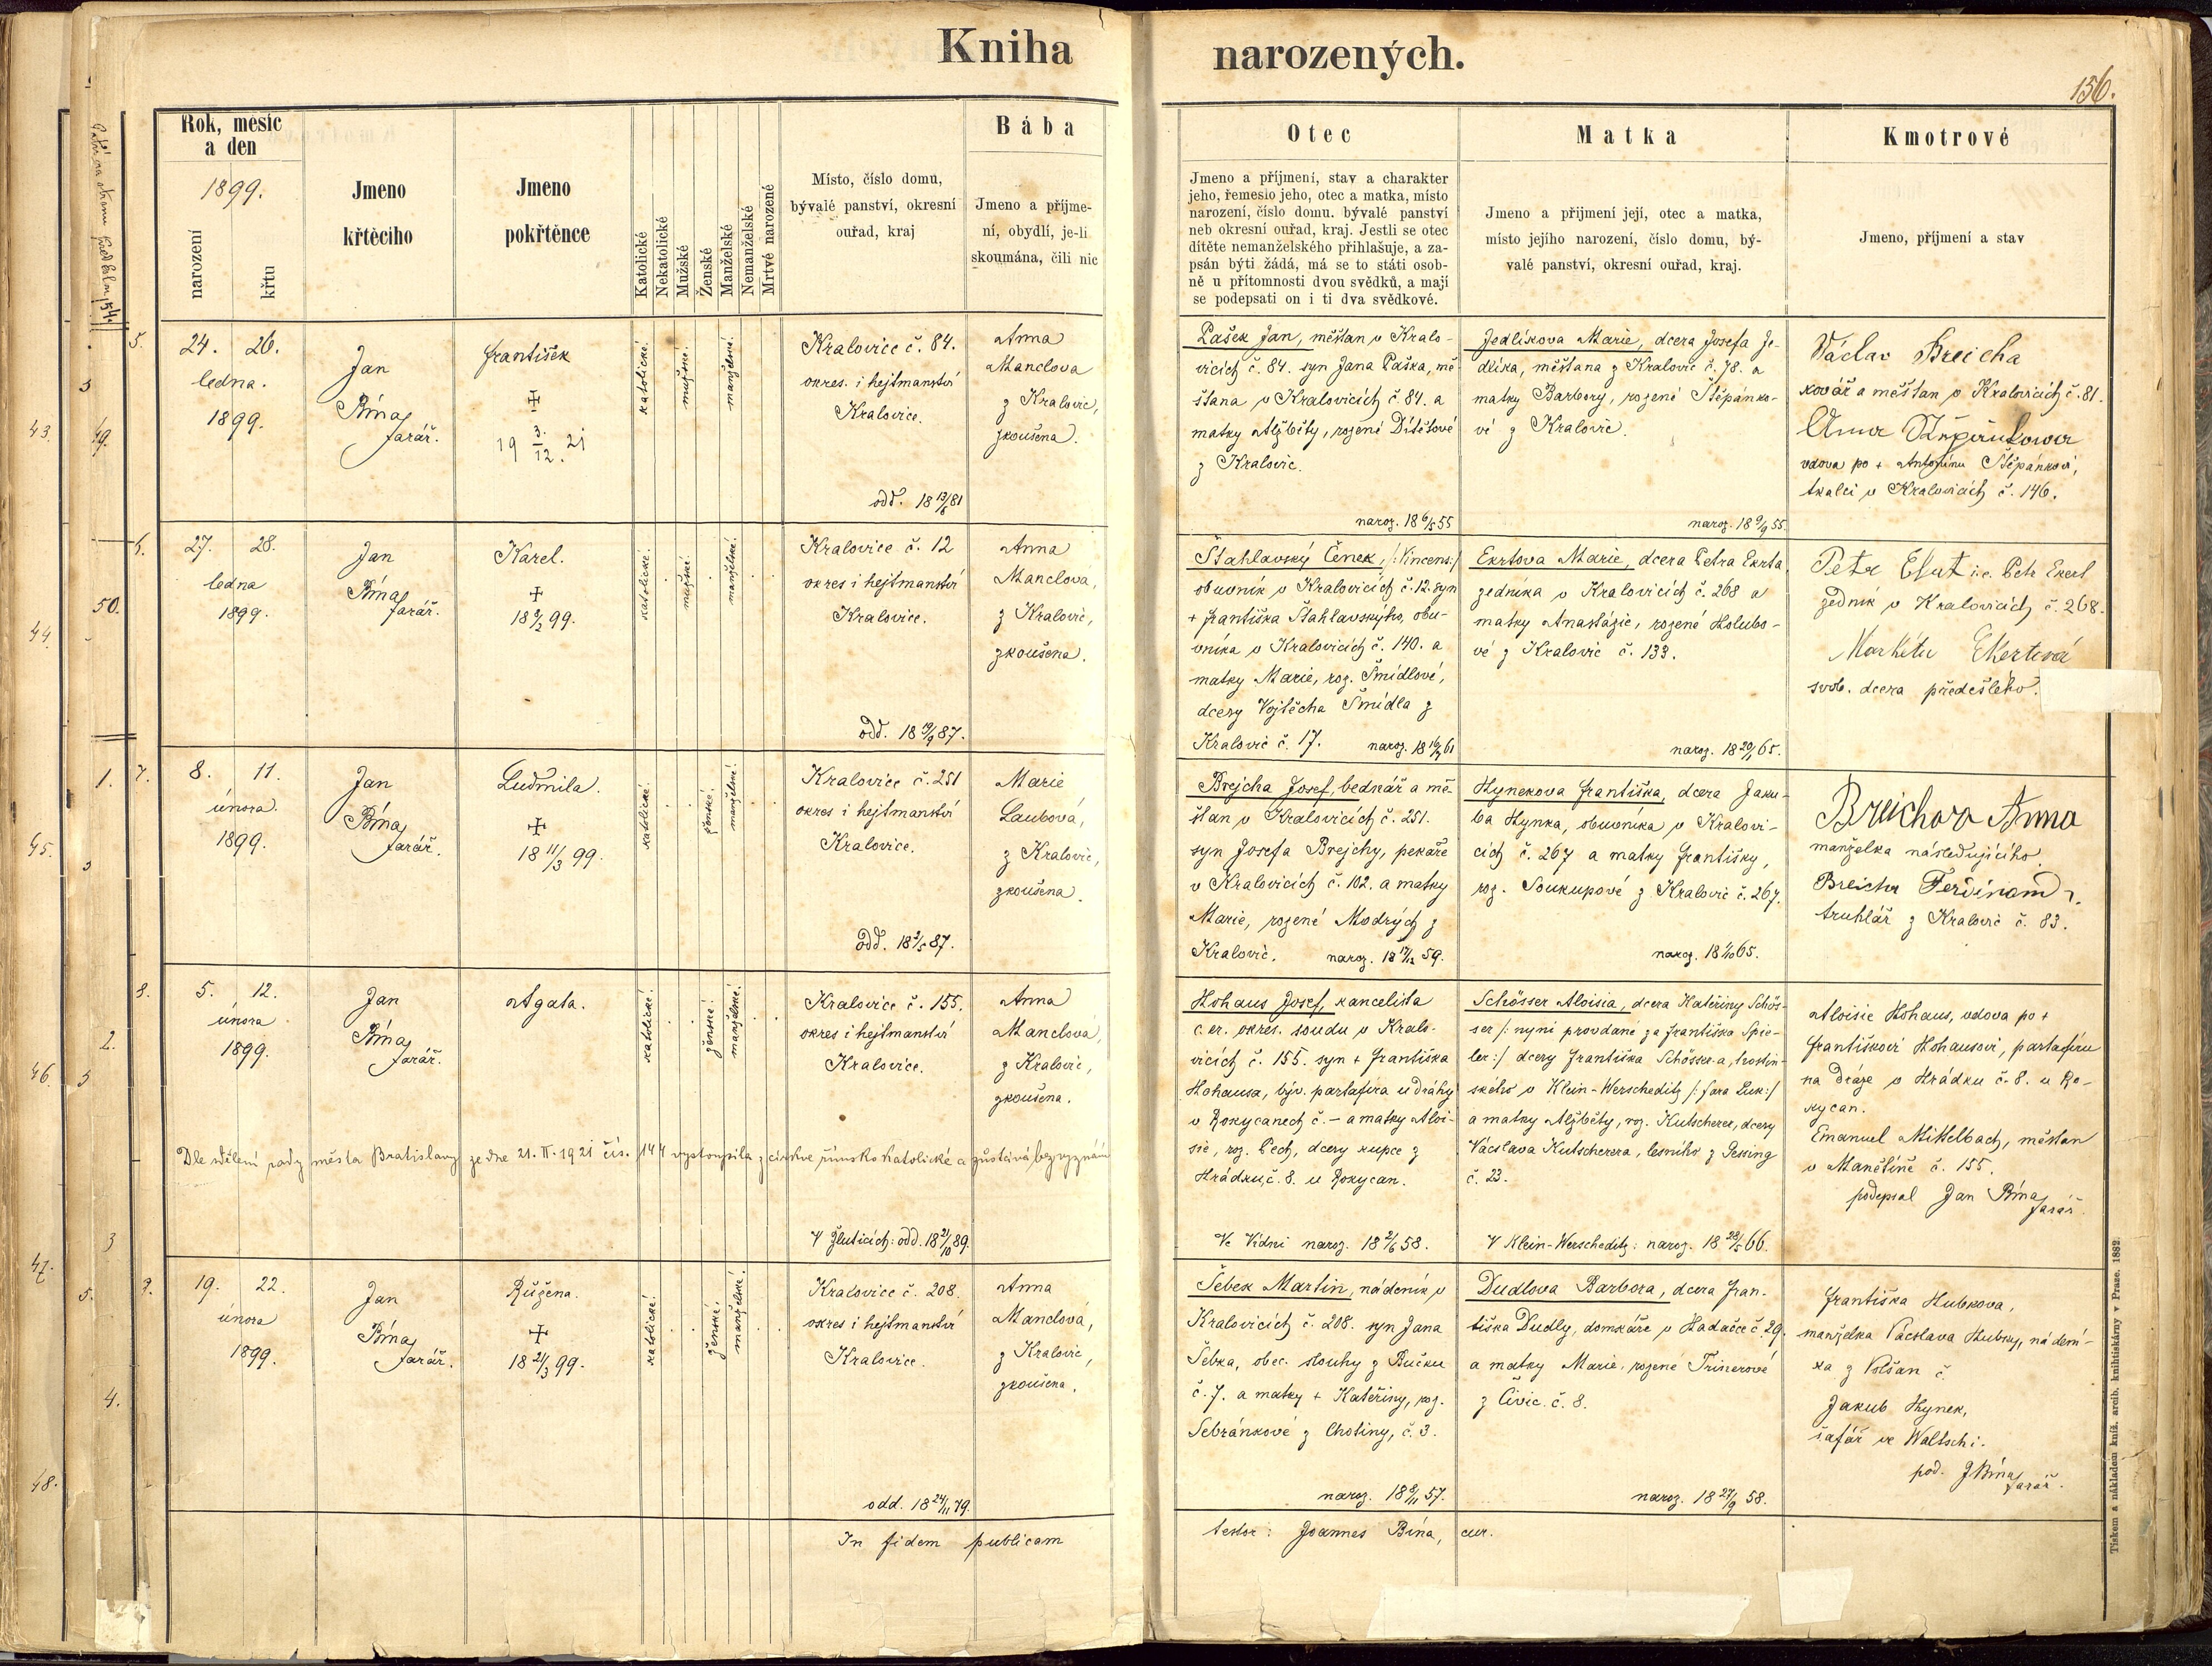 Kniha narozených.
156.
Rok, měsíc
a den
1899.
narození
křtu
Jmeno
křtěcího
Jmeno
pokřtěnce
Katolické
Nekatolické
Mužské
Ženské
Manželské
Nemanželské
Mrtvě narozené
Místo, číslo domu,
bývalé panství, okresní
ouřad, kraj
Bába
Jmeno a příjme-
ní, obydlí, je-li
skoumána, čili nic
Otec
Jmeno a příjmení, stav a charakter
jeho, řemeslo jeho, otec a matka, místo
narození, číslo domu. bývalé panství
neb okresní ouřad, kraj. Jestli se otec
dítěte nemanželského přihlašuje, a za-
psán býti žádá, má se to státi osob-
ně u přítomnosti dvou svědků, a mají
se podepsati on i ti dva svědkové.
Matka
Jmeno a přijmení její, otec a matka,
místo jejího narození, číslo domu, bý-
valé panství, okresní ouřad, kraj.
Kmotrové
Jmeno, příjmení a stav
5.
24. 26.
ledna.
1899.
Jan
Bína
farář.
František
19 3/12. 21
katolické.
mužské.
manželské.
Kralovice č. 84.
okres. i hejtmanství
Kralovice.
odd. 18 13/6 81
Anna
Manclova
z Kralovic,
zkoušena.
Pašek Jan, měštan v Kralo-
vicích č. 84. syn Jana Paška, mě-
štana v Kralovicích č. 84. a
matky Alžběty, rozené Dítětové
z Kralovic.
naroz. 18 6/5 55
Jedlíkova Marie, dcera Josefa Je-
dlíka, měštana z Kralovic č. 78. a
matky Barbory, rozené Štěpánko-
vé z Kralovic.
naroz. 18 9/9 55.
Václav Breicha
kovář a měštan v Kralovicích č. 81.
Anna Štěpánkowa
vdova po + Antonínu Štěpánkovi,
tkalci v Kralovicích č. 146.
6.
27. 28.
ledna
1899.
Jan
Bína
farář.
Karel.
katolické.
mužské.
manželské.
Kralovice č. 12
okres i hejtmanství
Kralovice.
odd. 18 19/9 87.
Anna
Manclova,
z Kralovic,
zkoušena.
Štahlavský Čenek, /:Vincens:/
obuvník v Kralovicích č. 12. syn
+ Františka Štahlavského, obu-
vníka v Kralovicích č. 140. a
matky Marie, roz. Šmídlové,
dcery Vojtěcha Šmídla z
Kralovic č. 17.
Ekrtova Marie, dcera Petra Ekrta
zedníka v Kralovicích č. 268 a
matky Anastázie, rozené Holubo-
vé z Kralovic č. 133.
naroz. 18 20/1 65.
i.e. Petr Ekert
zedník v Kralovicích č. 268.
Markéta Ekertová
svob. dcera předešlého.
7.
8. 11.
února.
1899.
Jan
Bína
farář.
Ludmila.
18 11/3 99.
katolické.
ženské.
manželské.
Kralovice č. 251
okres i hejtmanství
Kralovice.
odd. 18 2/5 87.
Marie
Laubová,
z Kralovic,
zkoušena.
Brejcha Josef, bednář a mě-
štan v Kralovicích č. 251.
syn Josefa Brejchy, pekaře
v Kralovicích č. 102. a matky
Marie, rozené Modrých z
Kralovic. naroz. 18 17/12 59.
Hynekova Františka, dcera Jaku-
ba Hynka, obuvníka v Kralovi-
cích č. 267 a matky Františky,
roz. Soukupové z Kralovic č. 267.
naroz. 18 1/10 65.
Breichova Anna
manželka následujícího.
Breicha Ferdinand
truhlář z Kralovic č. 83.
8.
5. 12.
února
1899.
Jan
Bína
farář.
Agata.
katolické.
ženské.
manželské.
Kralovice č. 155.
okres i hejtmanství
Kralovice.
Anna
Manclová,
z Kralovic,
zkoušena.
Dle sdělení rady města Bratislavy ze dne 21. II. 1921 čís. 144 vystoupila z církve římsko katolické a zůstává bez vyznání
V Žluticích: odd. 18 21/10 89.
Hohaus Josef, kancelista
c. er. okres. soudu v Kralo-
vicích č. 155. syn + Františka
Hohausa, býv. partafíra u dráhy
v Rokycanech č. – a matky Aloi-
sie, roz. Pech, dcery kupce z
Hrádku, č. 8. u Rokycan.
Ve Vídni naroz. 18 2/6 58.
Schösser Aloisia, dcera Kateřiny Schös-
ser /: nyní provdané za Františka Spie-
ler :/ dcery Františka Schösser-a, hostin-
ského v Klein-Werscheditz /: fara Luk :/
a matky Alžběty, roz. Kutscherer, dcery
Václava Kutscherera, lesního z Pessing
č. 23.
V Klein-Werscheditz: naroz. 18 28/5 66.
Aloisie Hohaus, vdova po +
Františkovi Hohausovi, partafíru
na dráze v Hrádku č. 8. u Ro-
kycan.
Emanuel Mittelbach, měštan
v Manětíně č. 155.
podepsal Jan Bína
farář.
9.
19. 22.
února
1899.
Jan
Bína
farář.
Růžena.
18 21/3 99.
katolické.
ženské.
manželské.
Kralovice č. 208.
okres i hejtmanství
Kralovice.
odd. 18 24/11 79.
Anna
Manclová,
z Kralovic,
zkoušena.
Šebek Martin, nádeník v
Kralovicích č. 208. syn Jana
Šebka, obec. slouhy z Bučku
č. 7. a matky + Kateřiny, roz.
Sebránkové z Chotiny, č. 3.
naroz. 18 8/11 57.
Dudlova Barbora, dcera Fran-
tiška Dudly, domkáře v Hadačce č. 29.
a matky Marie, rozené Trinerové
z Čivic. č. 8.
naroz. 18 27/9 58.
Františka Hubkova,
manželka Václava Hubky, nádení-
ka z Volšan č.
Jakub Hynek,
šafář ve Waltschi.
pod. J Bína
farář.
In fidem publicam testor: Joannes Bína, cur.
Tiskem a nákladem kníž. arcib. knihtiskárny v Praze. 1882
43.
44.
45.
46.
47.
48.
49.
50.
1.
2.
3
4.